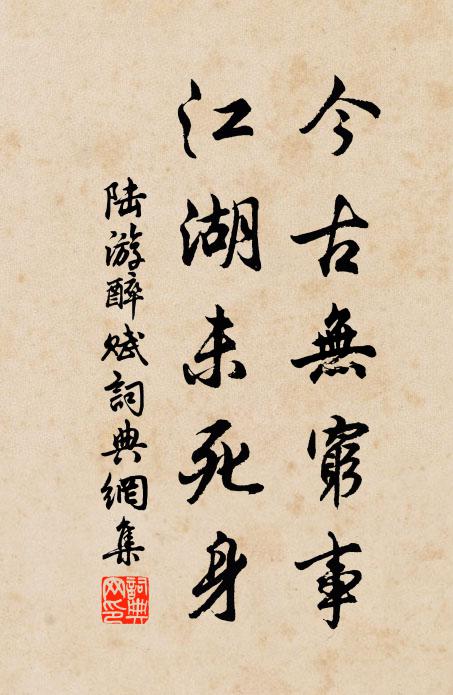 今古無窮事
江湖未死身
陸游醉賦詞典網集
詞典網印